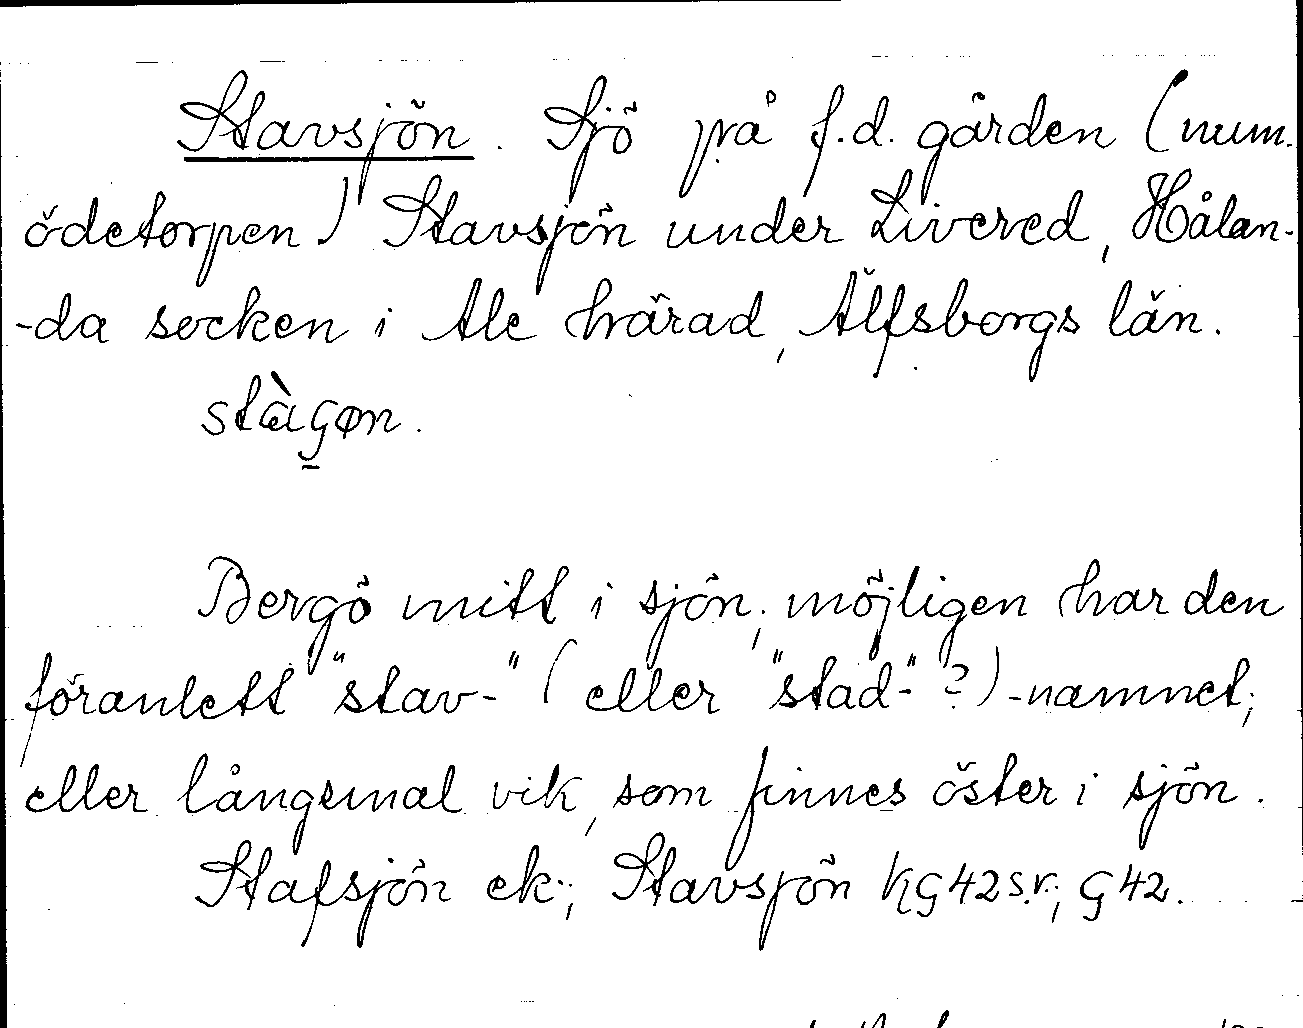 Stavsjön. Sjö på f.d. gården (num.
ödetorpen) Stavsjön under Livered, Hålan-
-da socken i Ale härad, Älfsborgs län.
stàgøn.
Bergö mitt i sjön, möjligen har den
föranlett "stav-" (eller "stad-"?)-namnet;
eller långsmal vik, som finnes öster i sjön.
Stafsjön ek.; Stavsjön KG42SV; G42.